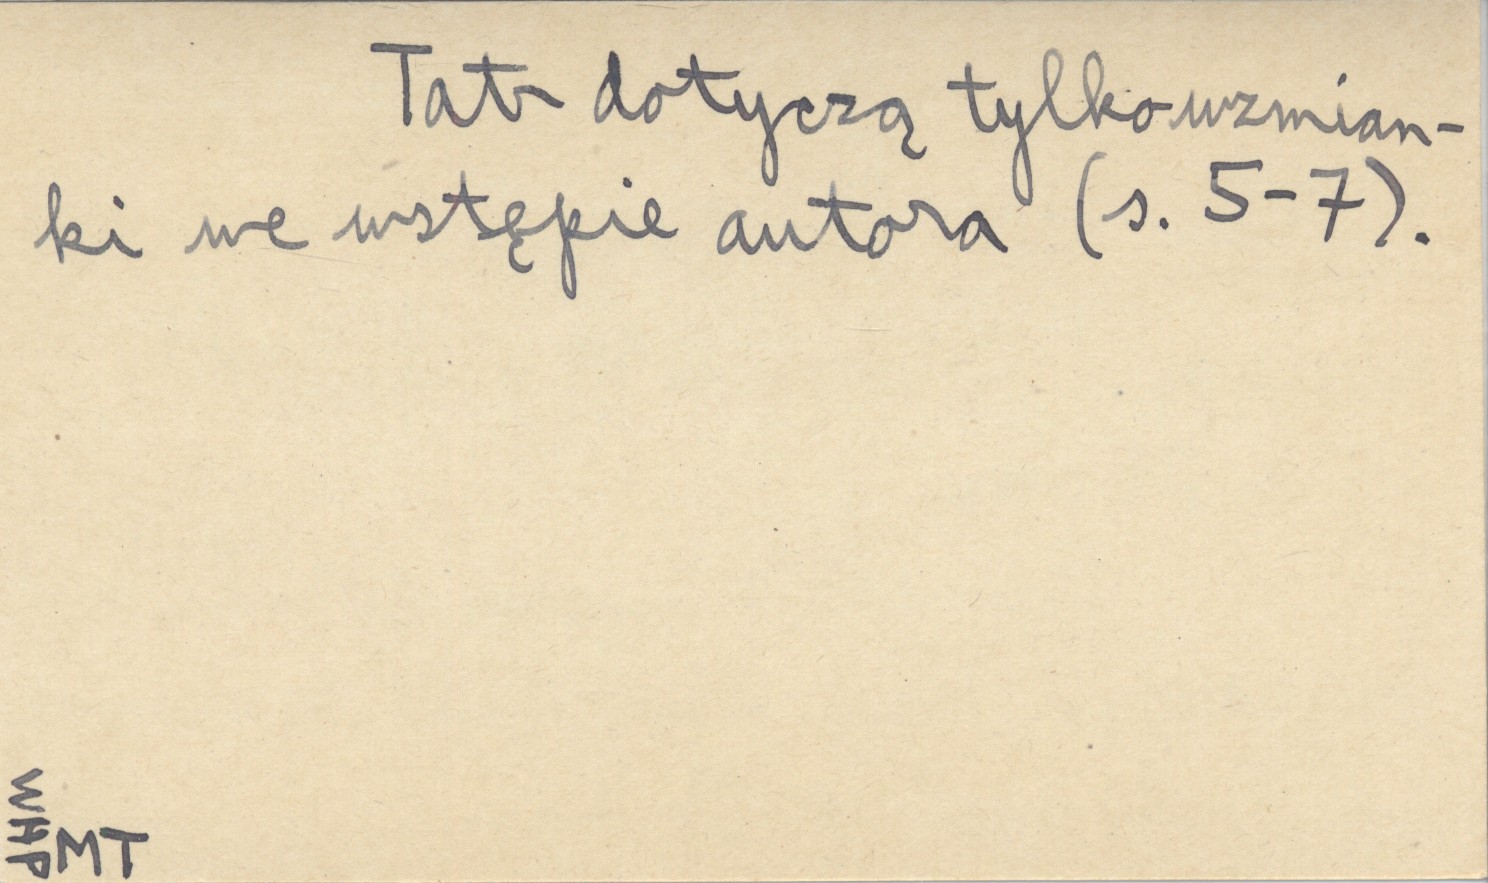 Tatr dotyczą tylko wzmian-
ki we wstępie autora (s. 5-7).
WHP
MT